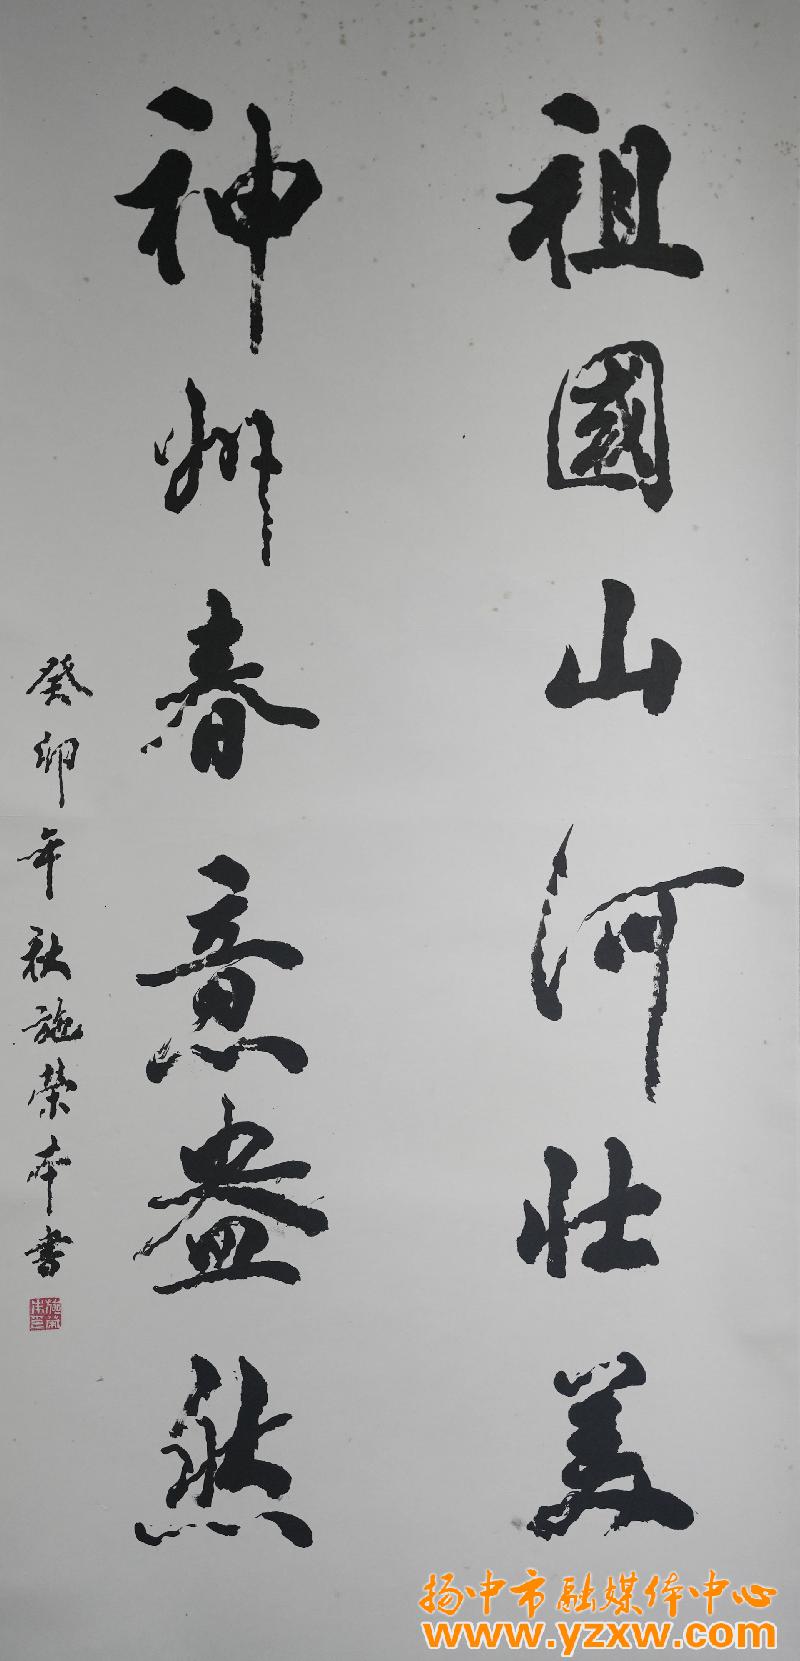 祖國山河壯美
神州春意盎然
癸卯年秋施榮本書
施榮本印
扬中市融媒体中心
www.yzxw.com